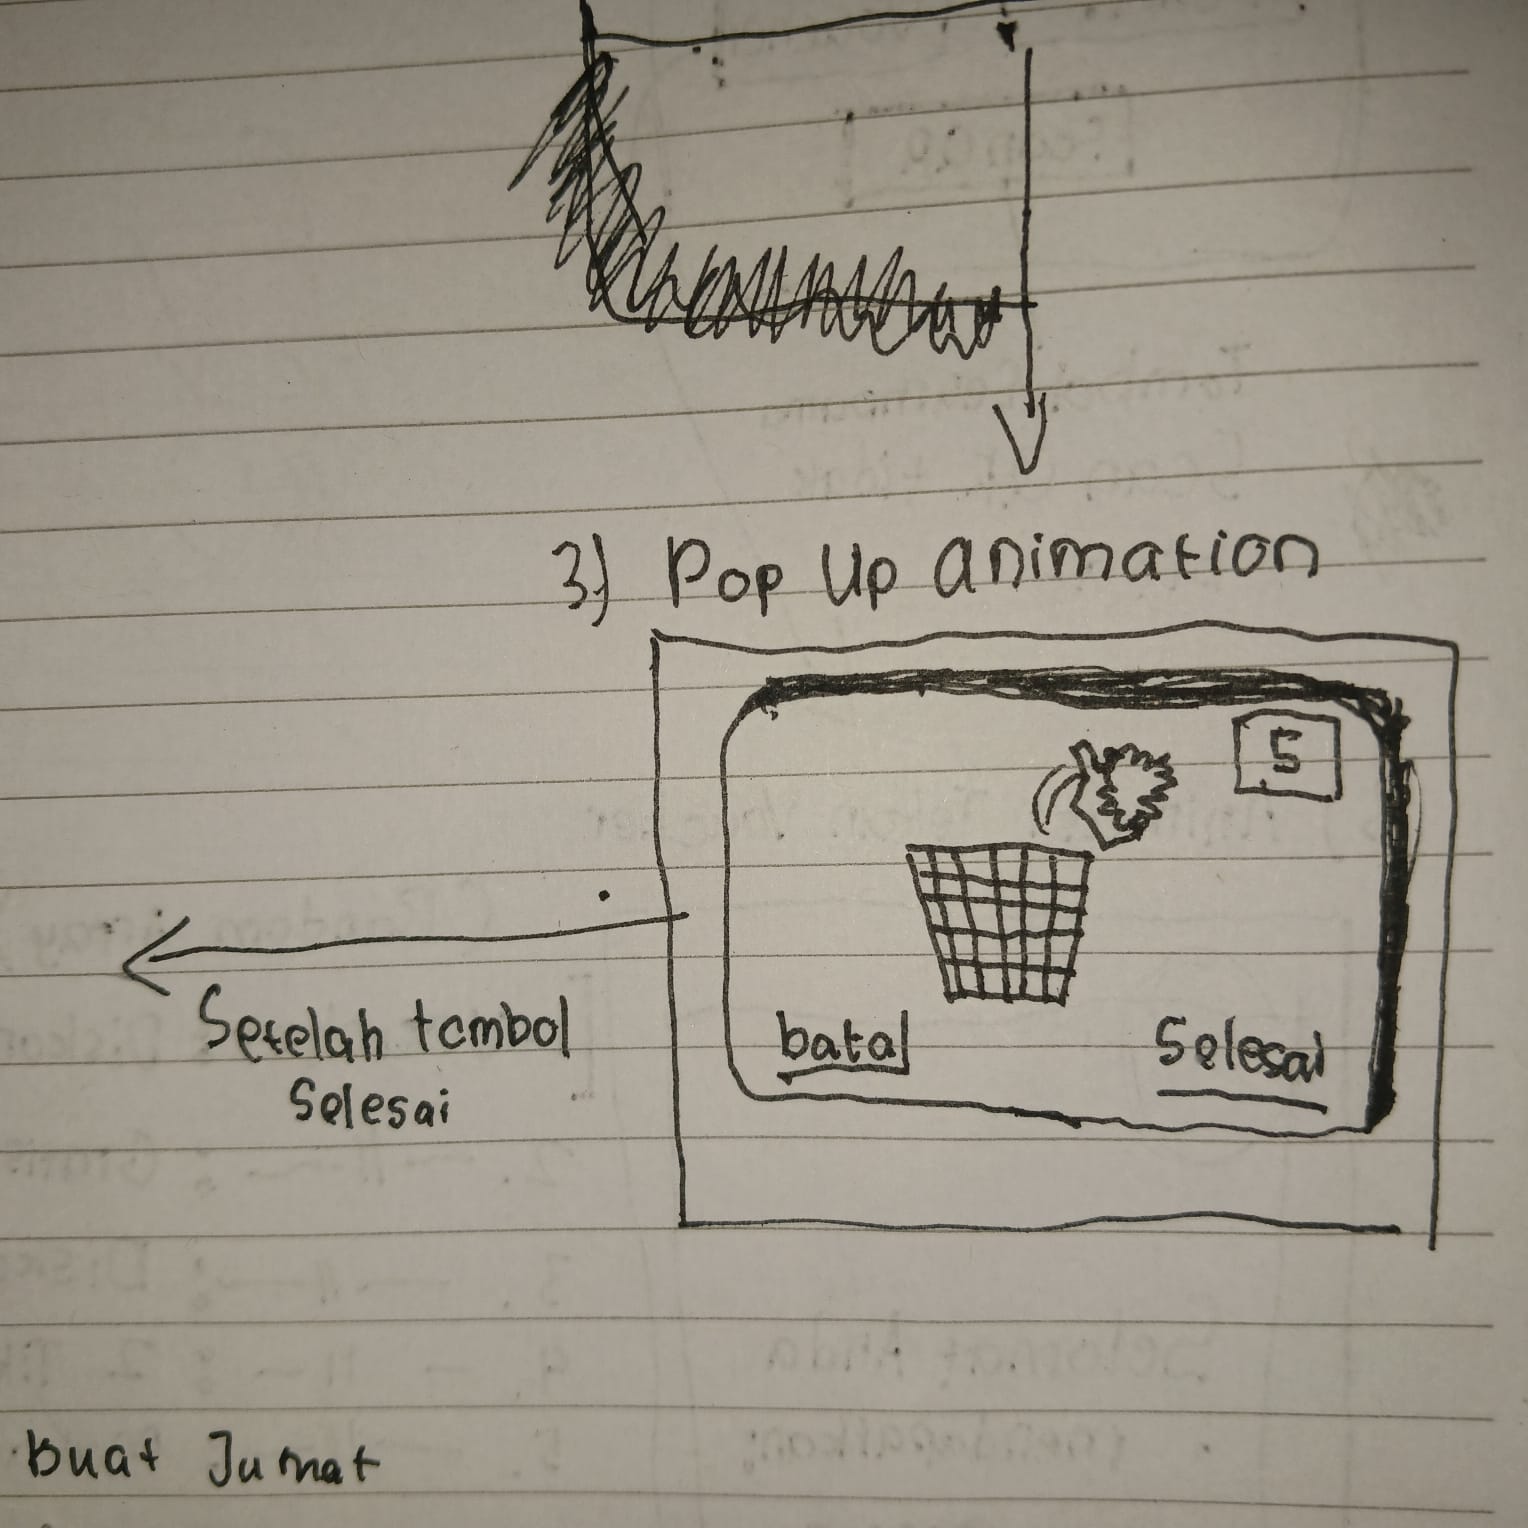 3) Pop Up animation
5
batal
Selesai
Setelah tombol
Selesai
Buat Jumat